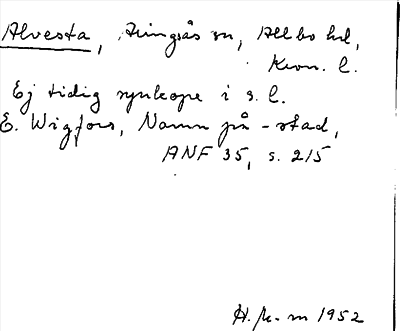 Alvesta, Aringsås sn, Allbo hd,
Kron. l.
Ej tidig synkope i s. l.
E. Wigfors, Namn på -stad,
ANF 35, s. 215
H. K-m 1952